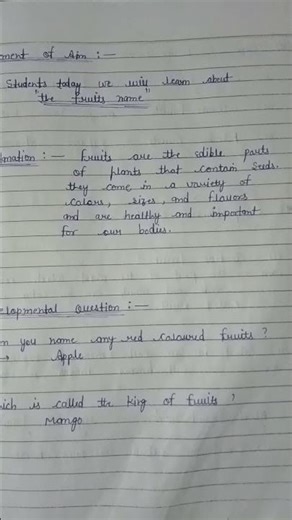 ment of Aim :—
Students today we will learn about
"the fruits name"
mation :— Fruits are the edible parts
of plants that contain seeds.
they come in a variety of
colors, sizes, and flavors
and are healthy and important
for our bodies.
elopmental Question :—
n you name any red coloured fruits ?
→ Apple
hich is called the king of fruits ?
Mango